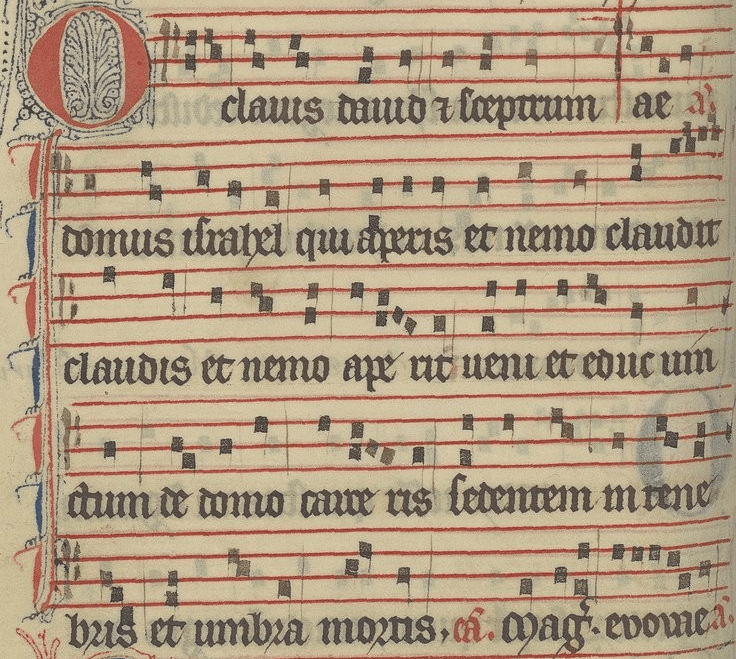 O clauis dauid ⁊ sceptrum ae
domus israhel qui aperis et nemo claudit
claudis et nemo ape rit ueni et educ uin
ctum de domo carce ris sedentem in tene
bris et umbra mortis, Mag̅. evovae